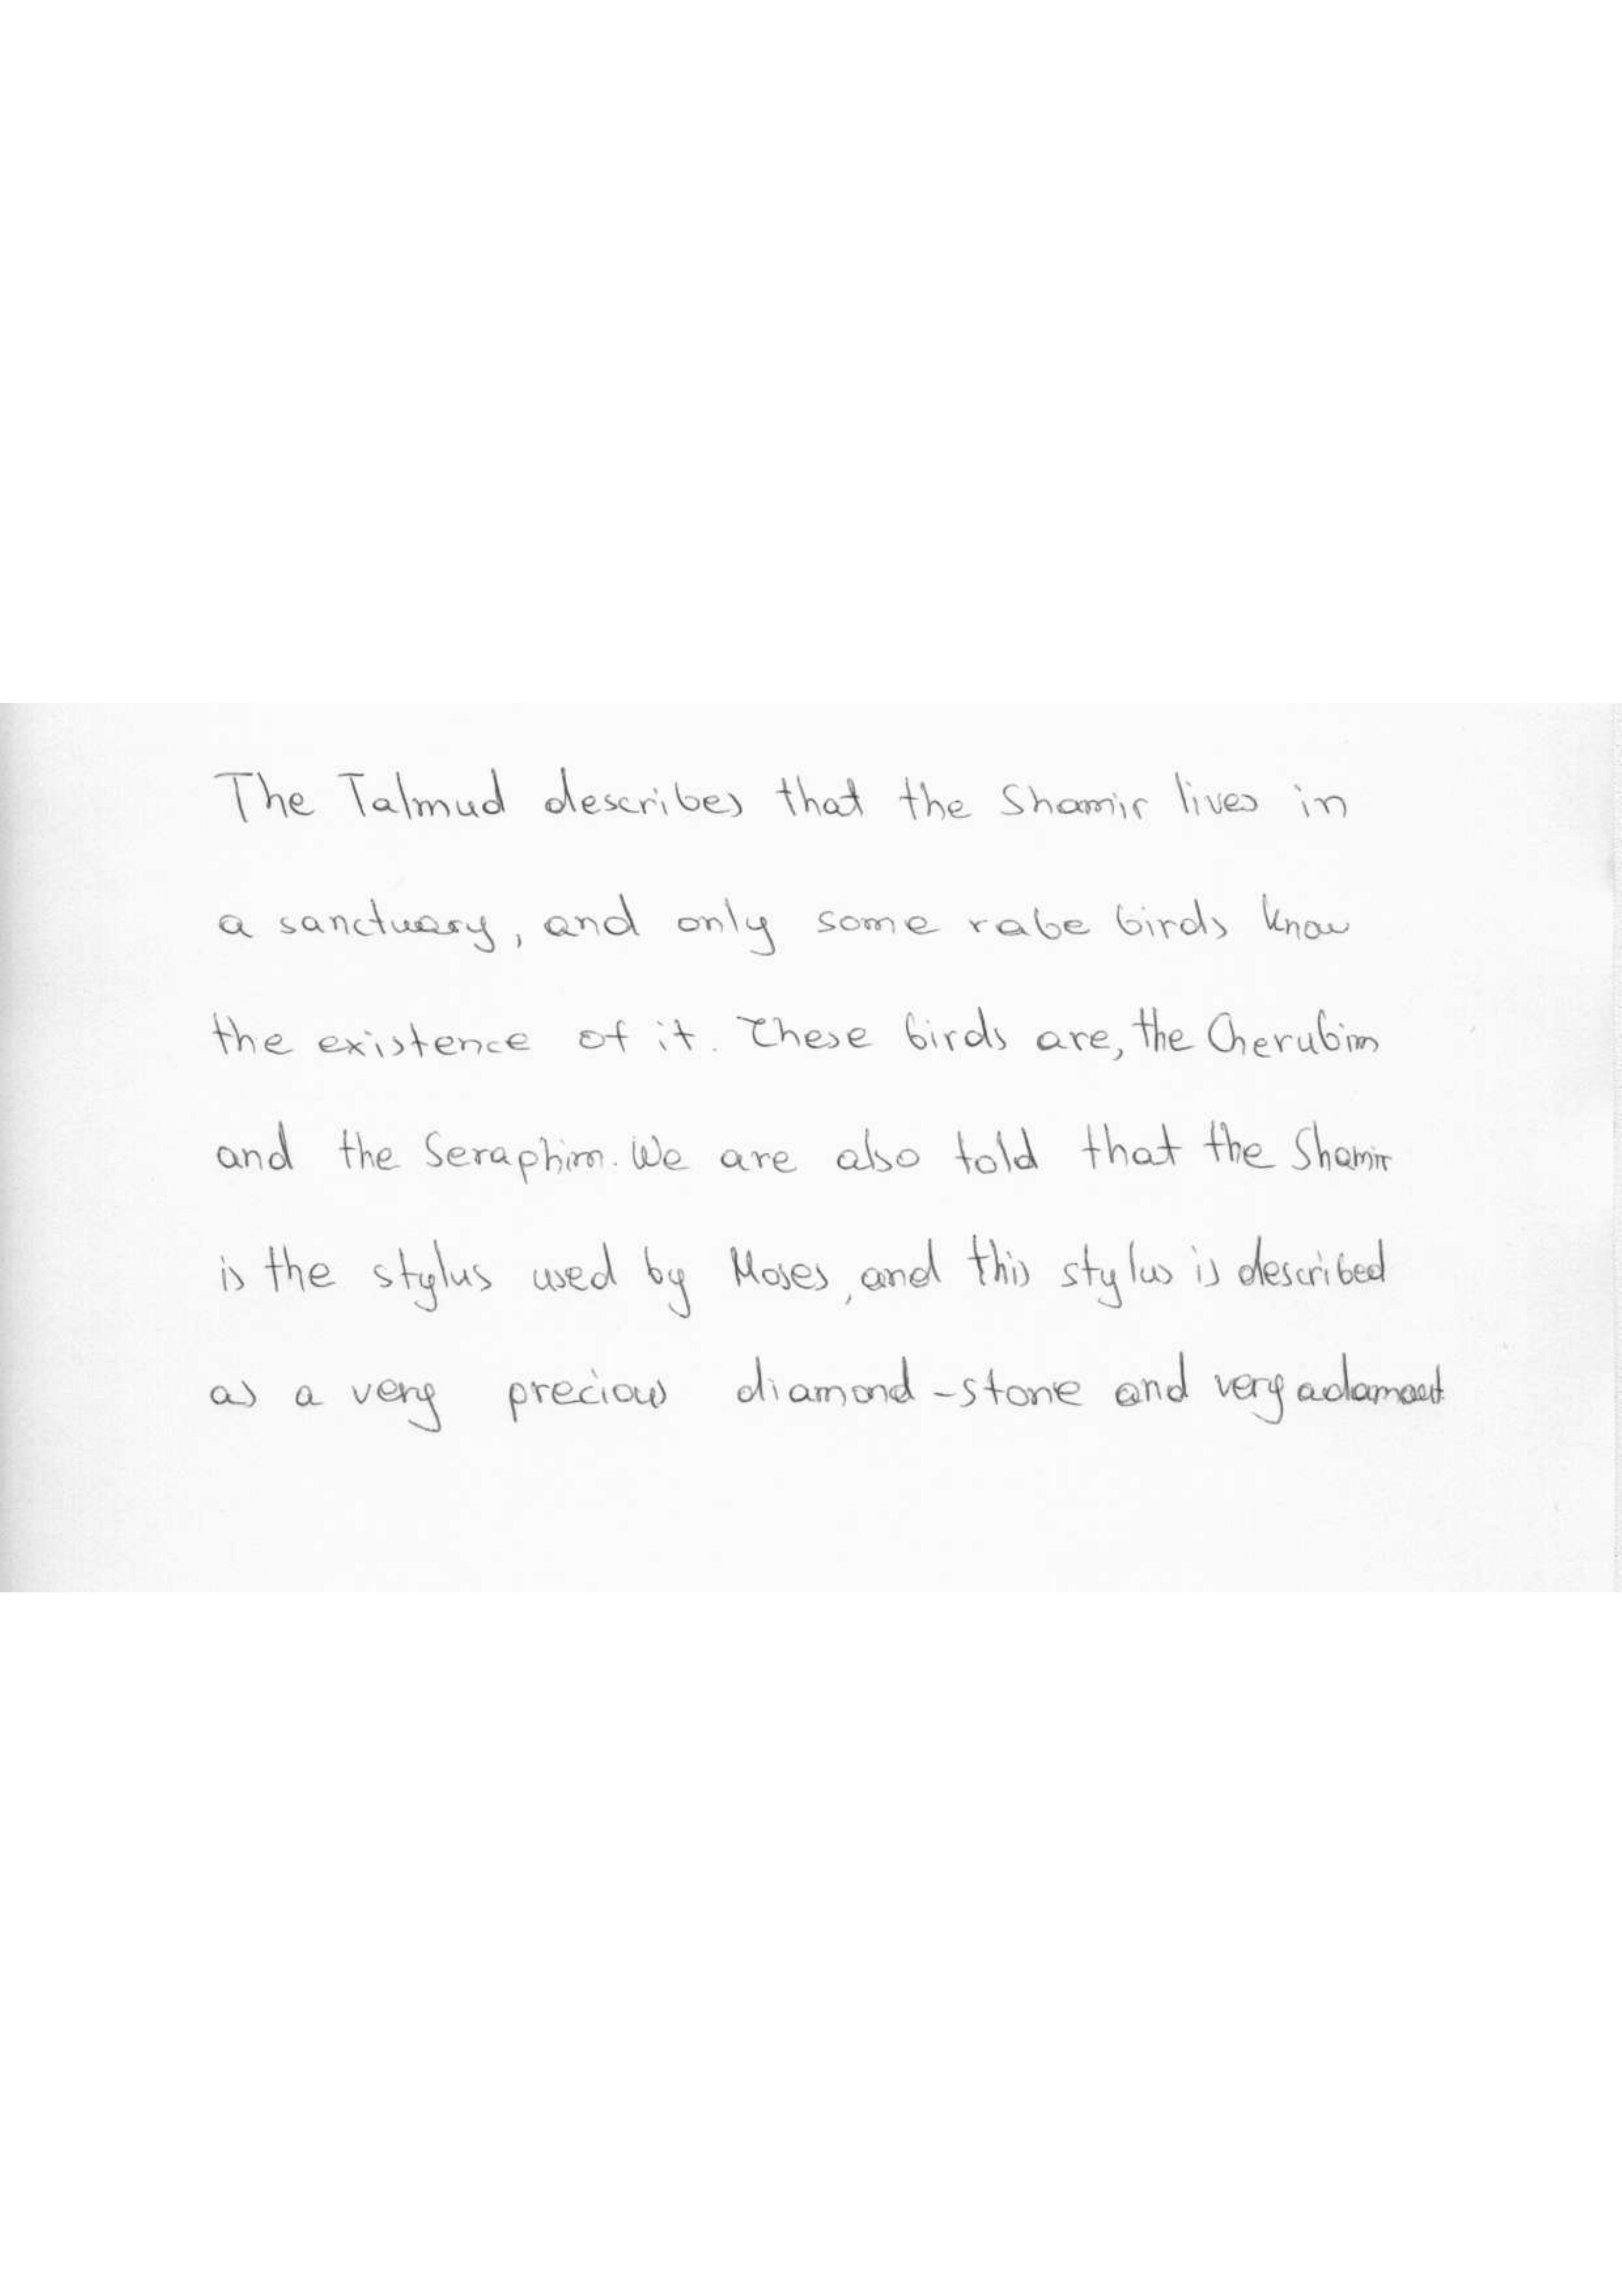 The Talmud describes that the Shamir lives in
a sanctuary, and only some rabe birds know
the existence of it. These birds are, the Cherubim
and the Seraphim. We are also told that the Shamir
is the stylus used by Moses, and this stylus is described
as a very precious diamond-stone and very adamant